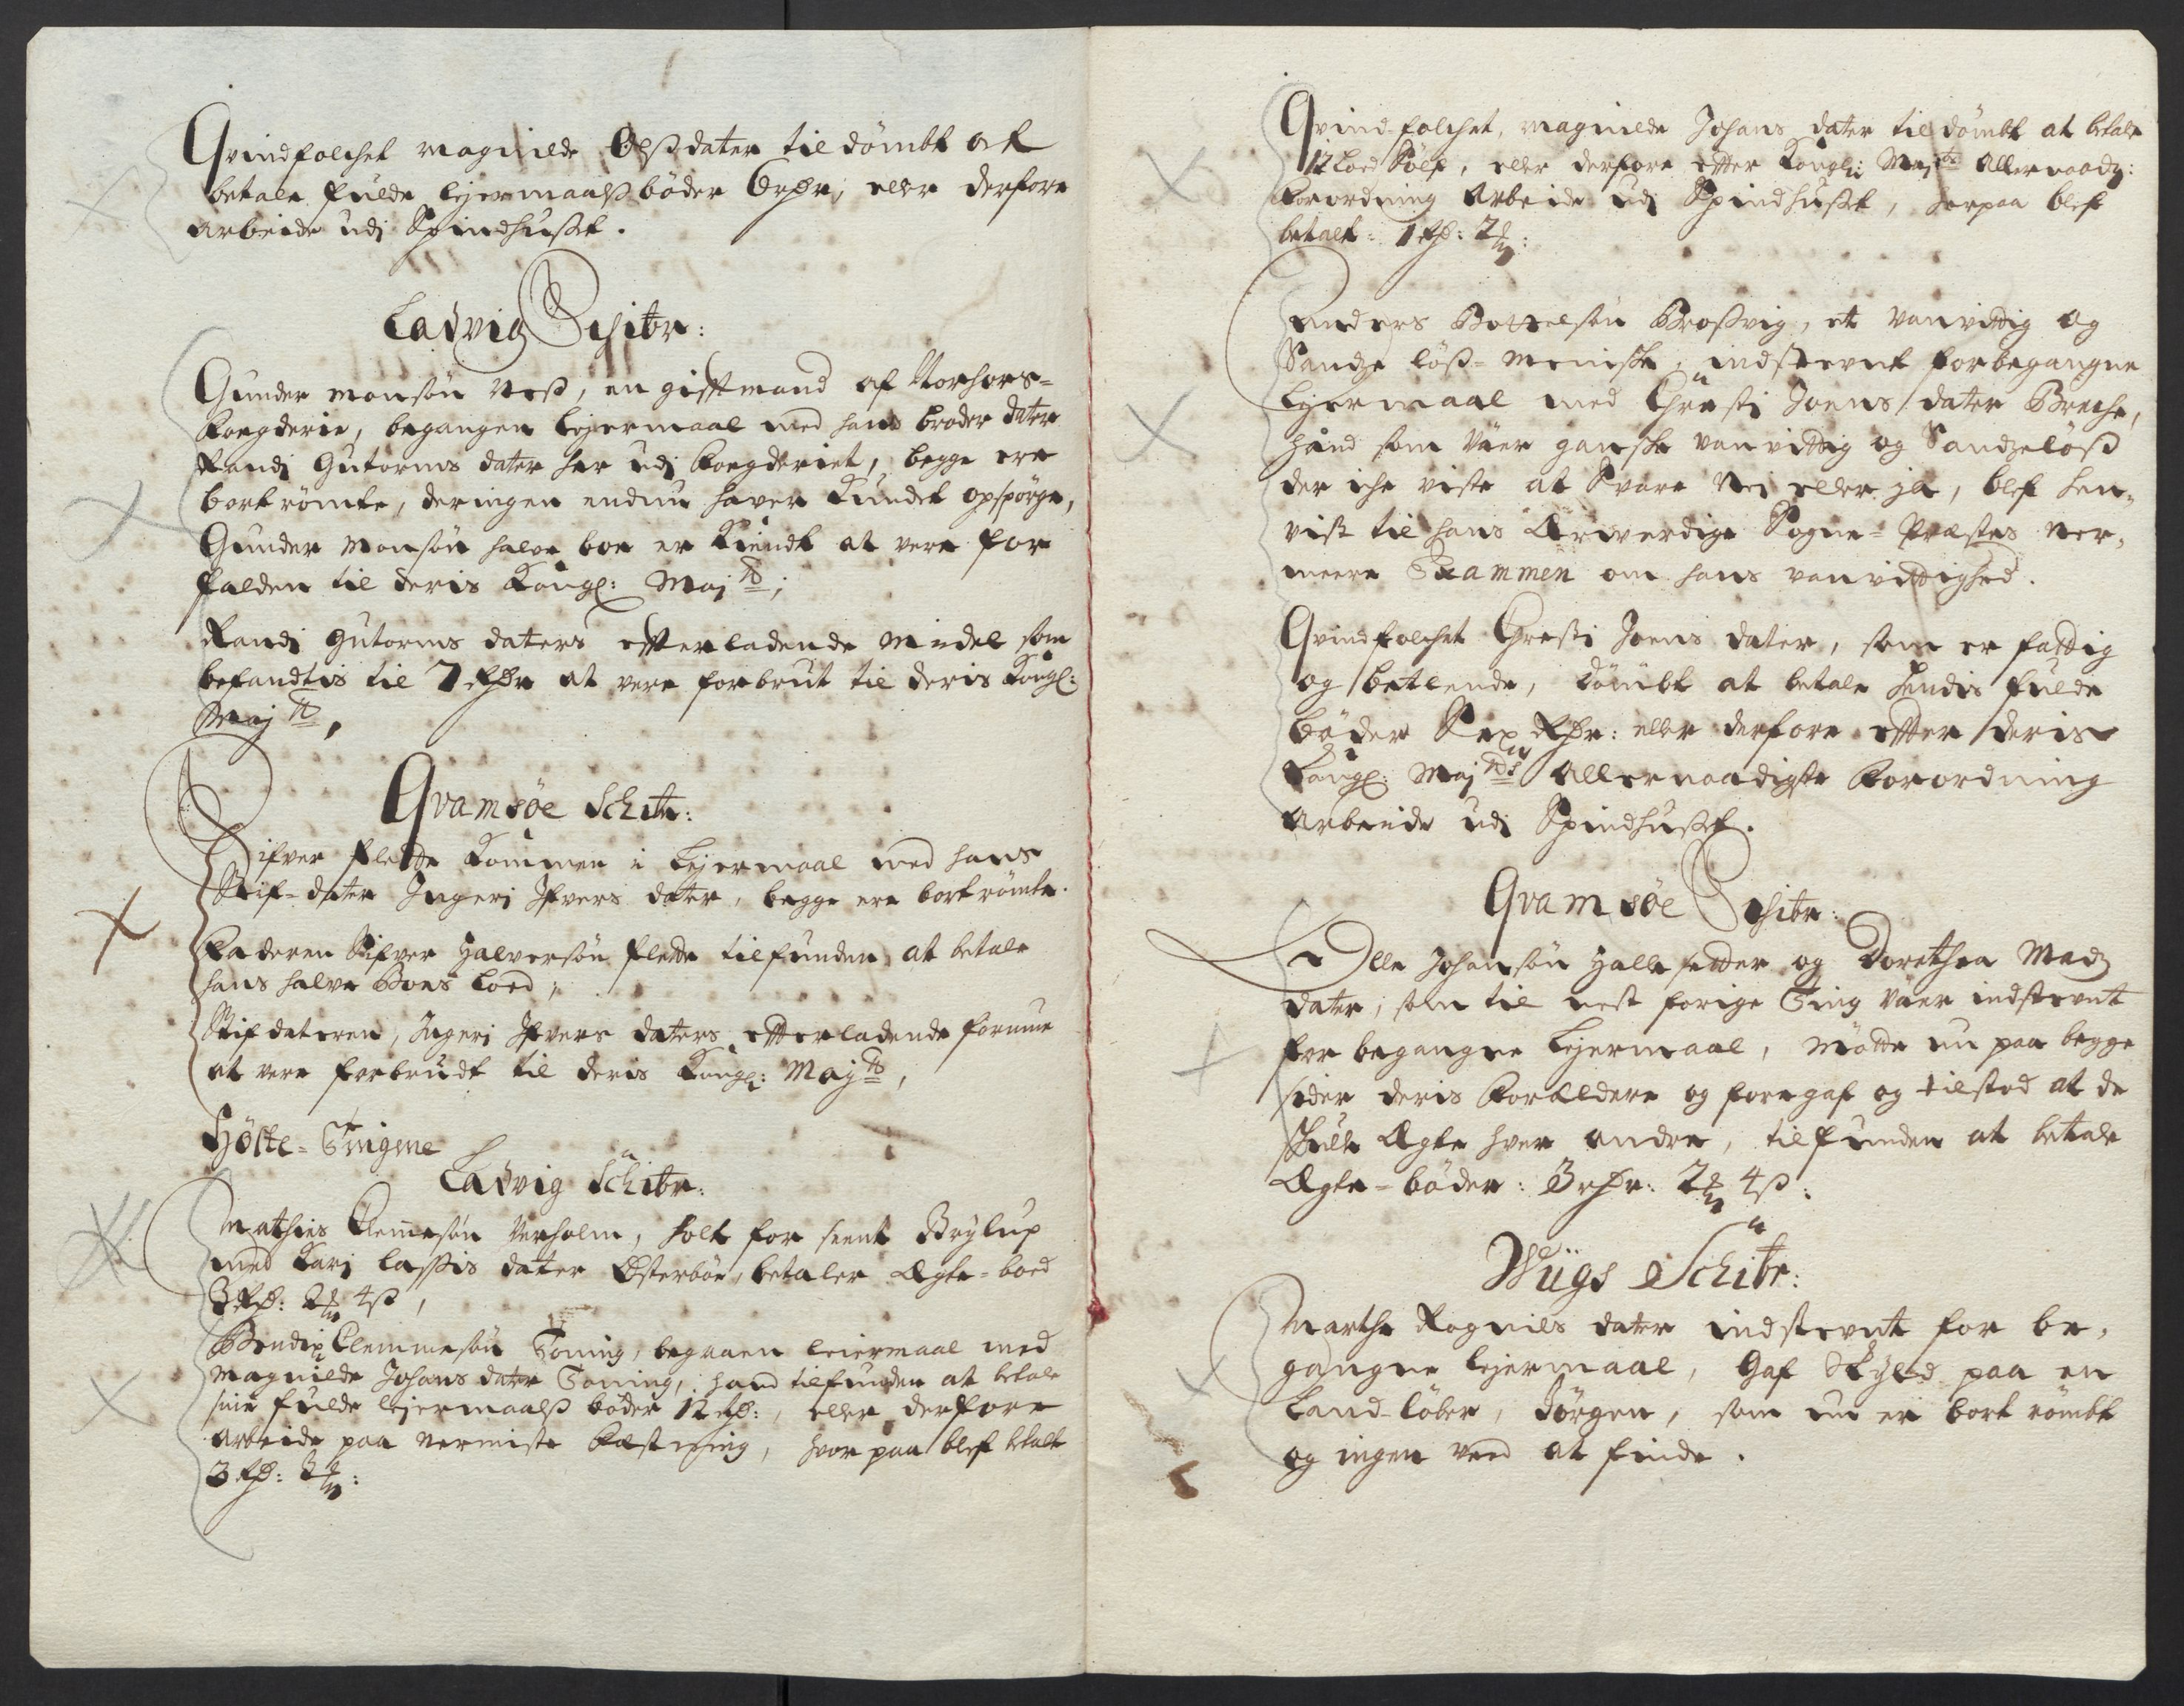 Qvindfolchet magnilde Olßdater til dömbt at
betale fulde lejermaalß böder 6 rdr, eller derfore
arbeide udj Spindhuset.
Ladvig Schibr:
Gunder monsön Neß, en gifft mand af Norhors-
fougderie, begangen lejermaal med hans broder dater
Randj Gutorms dater her udj fougderiet, begge ere
bortrömte, der ingen endnu haver kundet opspörge,
Gunder Monsön halve boe er kiendt at vere for
falden til deris Kongl: Majts;
Randj Gutorms daters effterladende midel som
befandtis til 7 rdr at vere forbrut til deris Kongl:
Majts,
Qvamsöe Schibr:
Sifver flette kommen i Lejermaal med hans
Stif-dater Ingerj Ifvers dater, begge ere bortrömte.
Faderen Sifver Halversön flette tilfunden at betale
hans halve Boes lod;
Stifdateren, Ingerj Ifvers daters effterladende formue
at vere forbrudt til deris Kongl: Majts,
Höste-Tingene
Ladvig Schibr:
Mathies Clemesön Verholm, holt for seent Brylup
med Karj laßis dater Österbön, betaler Ægte-boed
3 Rd: 2 m 4 ß,
Bendix Clemmesön Torning, begaaen leiermaal med
Magnilde Johans dater Torning, hand tilfunden at betale
sine fulde lejermaalß böder 12 rd:, eller derfore
arbeide paa nermeste Festning, hvor paa blef betalt
3 rd: 3 m:
Qvind-folchet, magnilde Johans dater til dömbt at betale
12 Lod Sölf, eller derfore effter Kongl: Majts allernaadig:
Forordning arbeide udj Spindhuset, herpaa blef
betalt: 1 rd: 2 m:
Anders Bottelsön Broßvig, et vanvittig og
Sandze löß-meniske, indstevnt for begangne
Lejermaal med Chrestj Joens dater Breche,
hand som väer ganske vanvittig og Sandzelöß
der iche viste at Svare Nej eller ja, blef hen-
vist til hans Ærverdige Sogne-Præstes ner-
meere Exammen om hans vanvittighed.
Qvindfolchet Chrestj Joens dater, som er fattig
og betlende, dömbt at betale hendis fulde
böder Sex Rdr: eller derfore effter deris
Kongl: Majts allernaadigste Forordning
arbeide udj Spindhuset.
Qvamsöe Schibr:
Olle Johansön Hallsetter og Dorethea Madz
dater, som til nest forige Ting väer indstevnt
for begangne Lejermaal, mötte nu paa begge
sider deris Forældere og foregaf og tilstod at de
skulle Ægte hver andre, tilfunden at betale
Ægte-böder: 3 rdr: 2 m 4 ß:
Wügs Schibr:
Marthe Rognils dater indstevnt for be-
gangne lejermaal, Gaf Skyld paa en
Land-löber, Jörgen, som nu er bort römbt
og ingen veed at finde.